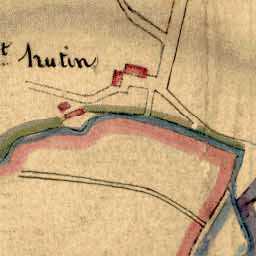 t hutin